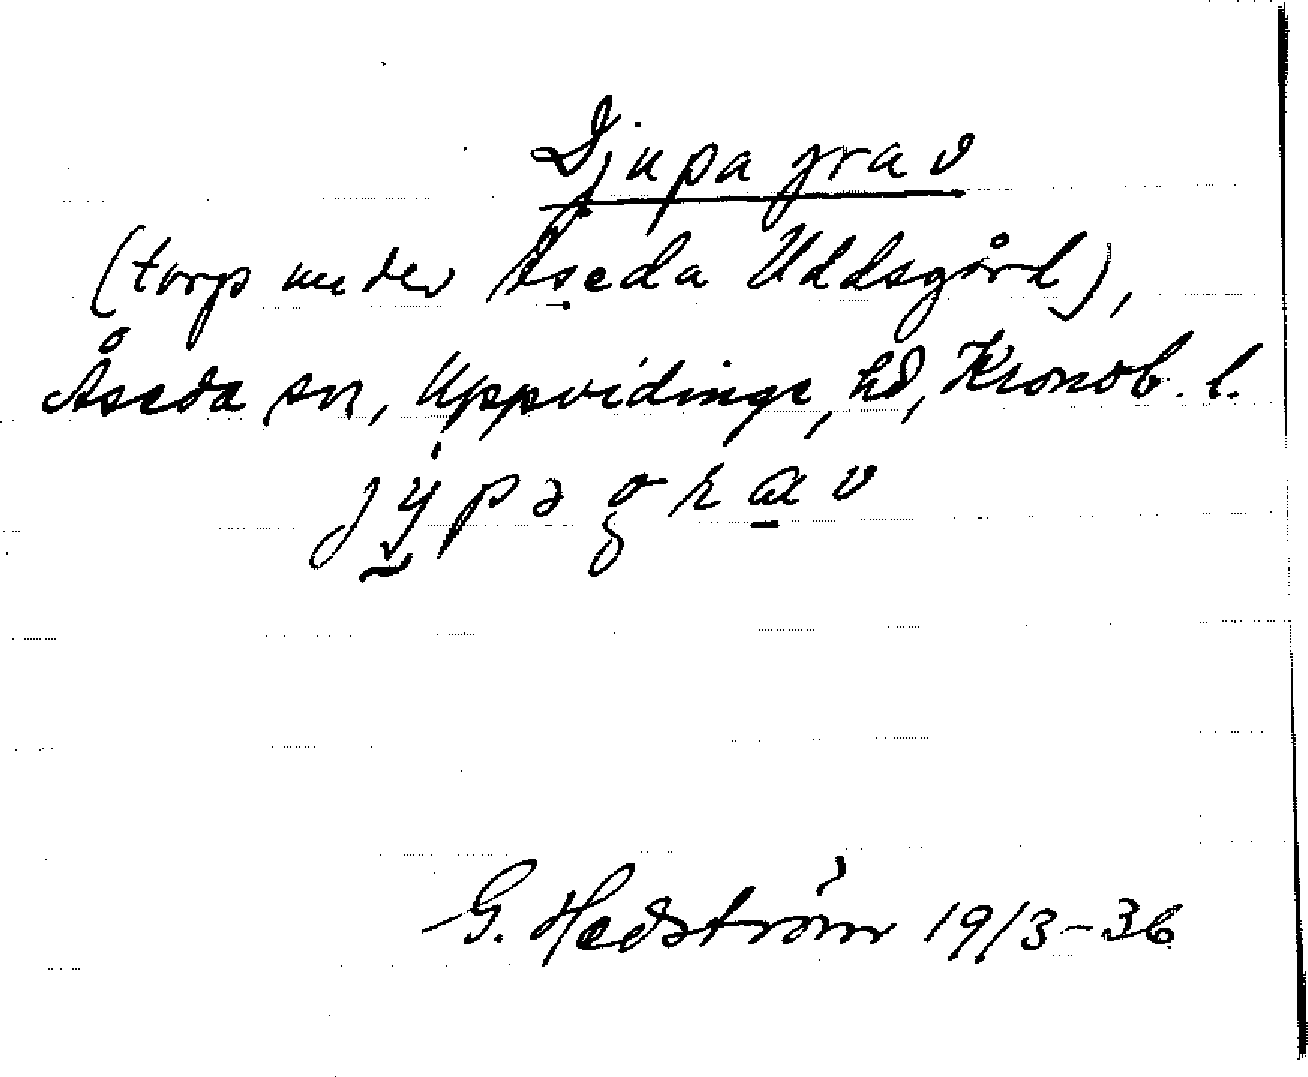 Djupagrav
(torp under Åseda Uddsgård),
Åseda sn, Uppvidinge hd, Kronob. l.
jypəgrav
G. Hedström 19/3-36